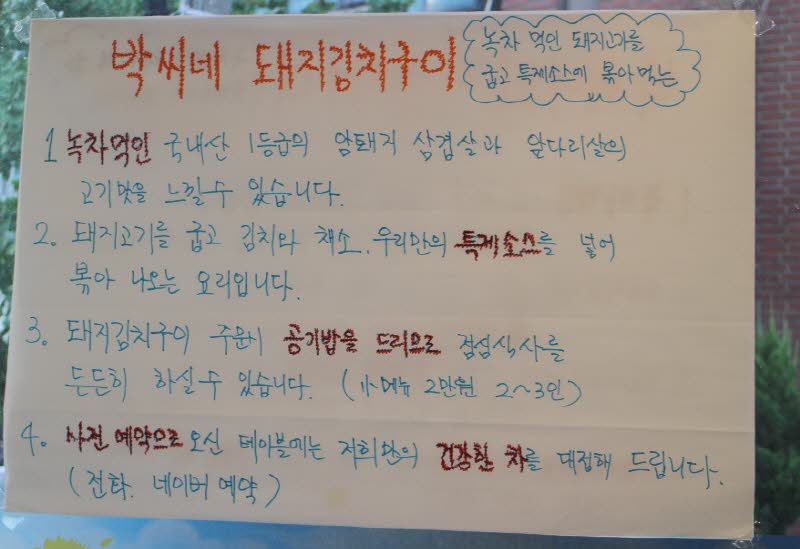 박씨네 돼지김치구이
녹차 먹인 돼지고기를
굽고 특제소스에 볶아먹는
1 녹차먹인 국내산 1등급의 암퇘지 삼겹살과 앞다리살의
고기맛을 느낄수 있습니다.
2. 돼지고기를 굽고 김치와 채소. 우리만의 특제소스를 넣어
볶아 나오는 요리입니다.
3. 돼지김치구이 주문시 공기밥을 드리므로 점심식사를
든든히 하실수 있습니다. (小메뉴 2만원 2~3인)
4. 사전 예약으로 오신 테이블에는 저희만의 건강한 차를 대접해 드립니다.
(전화. 네이버 예약)